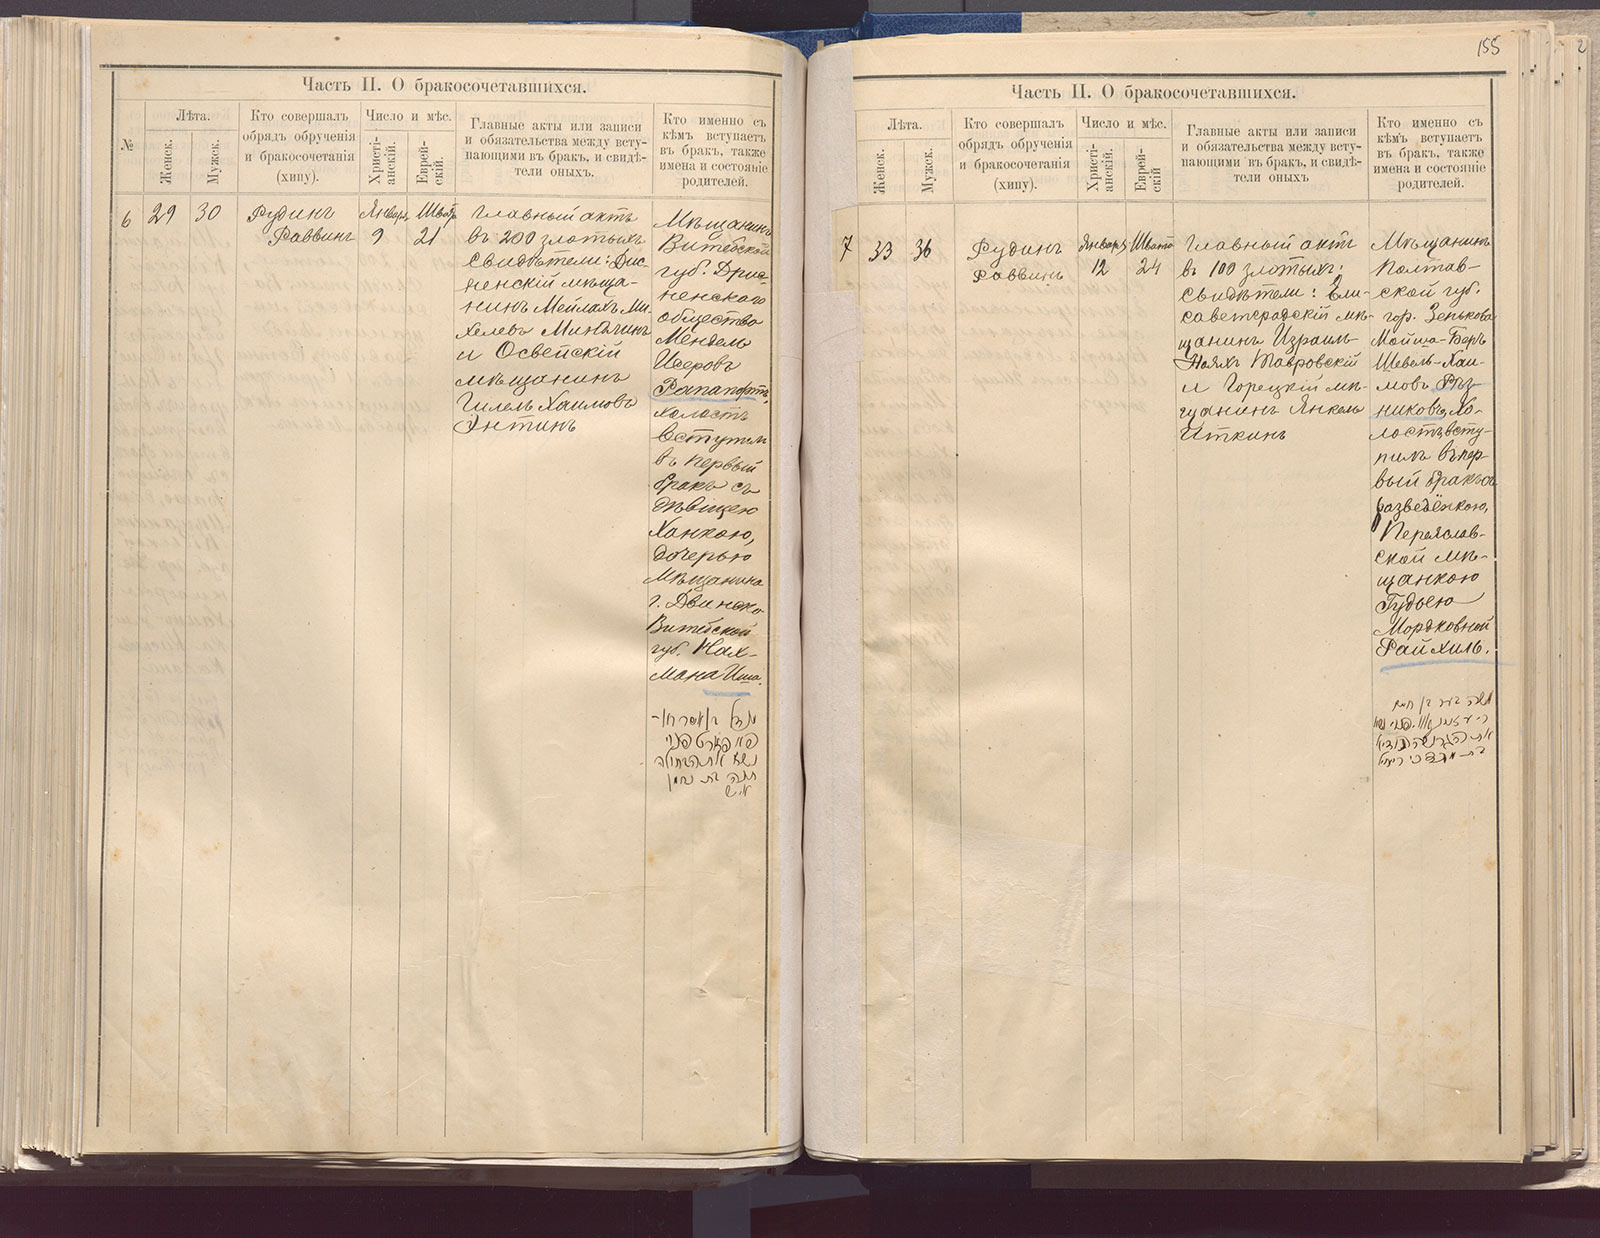 155
2
Часть II. О бракосочетавшихся.
№
Лѣта.
Женск.
Мужск.
Кто совершалъ
обрядъ обрученія
и бракосочетанія
(хипу).
Число и мѣс.
Христі-
анскій.
Еврей-
скій.
Главные акты или записи
и обязательства между всту-
пающими въ бракъ, и свидѣ-
тели оныхъ.
Кто именно съ
кѣмъ вступаетъ
въ бракъ, также
имена и состояніе
родителей.
6
29
30
Рудинъ
Раввинъ
Январ.
9
Шватъ
21
Главный актъ
въ 200 злотыхъ
Свидѣтели: Дис-
ненскій мѣща-
нинъ Мейлахъ Ми-
хелевъ Миначинъ
и Освейскій
мѣщанинъ
Гилель Хаимовъ
Энтинъ
Мѣщанинъ
Витебской
губ. Дрис-
ненскаго
общества
Мендель
Исеровъ
Рапапортъ,
холостъ
вступилъ
въ первый
бракъ съ
дѣвицею
Ханкою,
дочерью
Мѣщанина
г. Двинска
Витебской
губ. Нах-
мана Иша.
מנדל בן איסר רא-
פאפארט פנוי
נשא את הבתולה
חנה בת נחמן
איש
Часть II. О бракосочетавшихся.
Лѣта.
Женск.
Мужск.
Кто совершалъ
обрядъ обрученія
и бракосочетанія
(хипу).
Число и мѣс.
Христі-
анскій.
Еврей-
скій
Главные акты или записи
и обязательства между всту-
пающими въ бракъ, и свидѣ-
тели оныхъ
Кто именно съ
кѣмъ вступаетъ
въ бракъ, также
имена и состояніе
родителей.
7
33
36
Рудинъ
Раввинъ
Январ.
12
Шватъ
24
Главный актъ
въ 100 злотыхъ;
Свидѣтели: Ели-
саветградскій мѣ-
щанинъ Израиль-
Ноахъ Тавровскій
и Горецкій мѣ-
щанинъ Янкель
Иткинъ
Мѣщанинъ
Полтав-
ской губ.
гор. Зенькова
Мойша-Беръ
Шевель-Хаи-
мовъ Рѣз-
никовъ, хо-
лостъ, всту-
пилъ въ пер-
вый бракъ съ
разведёнкою,
Переяслав-
ской мѣ-
щанкою
Гудьею
Мордковной
Райхиль.
משה בער בן חיים
את הגרושה
בת מרדכי רייחיל